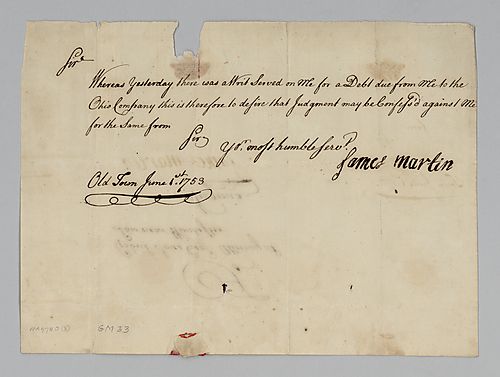 Sir
Whereas Yesterday there was a Writ Served on Me for a Debt due from Me to the
Ohio Company this is therefore to desire that Judgment may be Confess'd against Me
for the Same from
Sir
Yor. most humble Servt.
James Martin
Old Town June 1st. 1753
GM 33